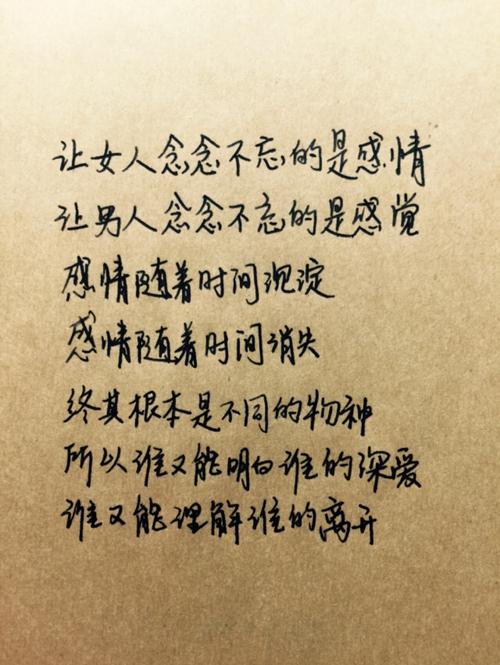 让女人念念不忘的是感情
让男人念念不忘的是感觉
感情随着时间沉淀
感情随着时间消失
终其根本是不同的物神
所以谁又能明白谁的深爱
谁又能理解谁的离开